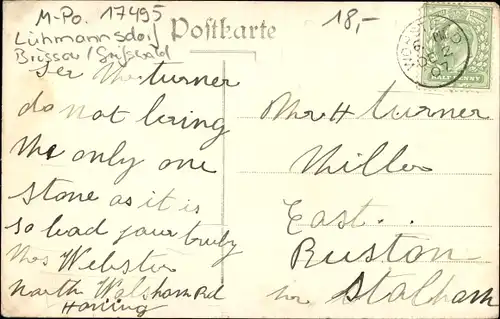 M-Po. 17495
Lühmannsdorf
Brüssow / Greifswald
Postkarte
18,-
HALFPENNY
DE 2
07
Mr turner
do not bring
the only one
stone as it is
so bad your truly
Thos Webster
North Walsham Rd
Honing
Mr H turner
Miller
East
Ruston
nr Stalham